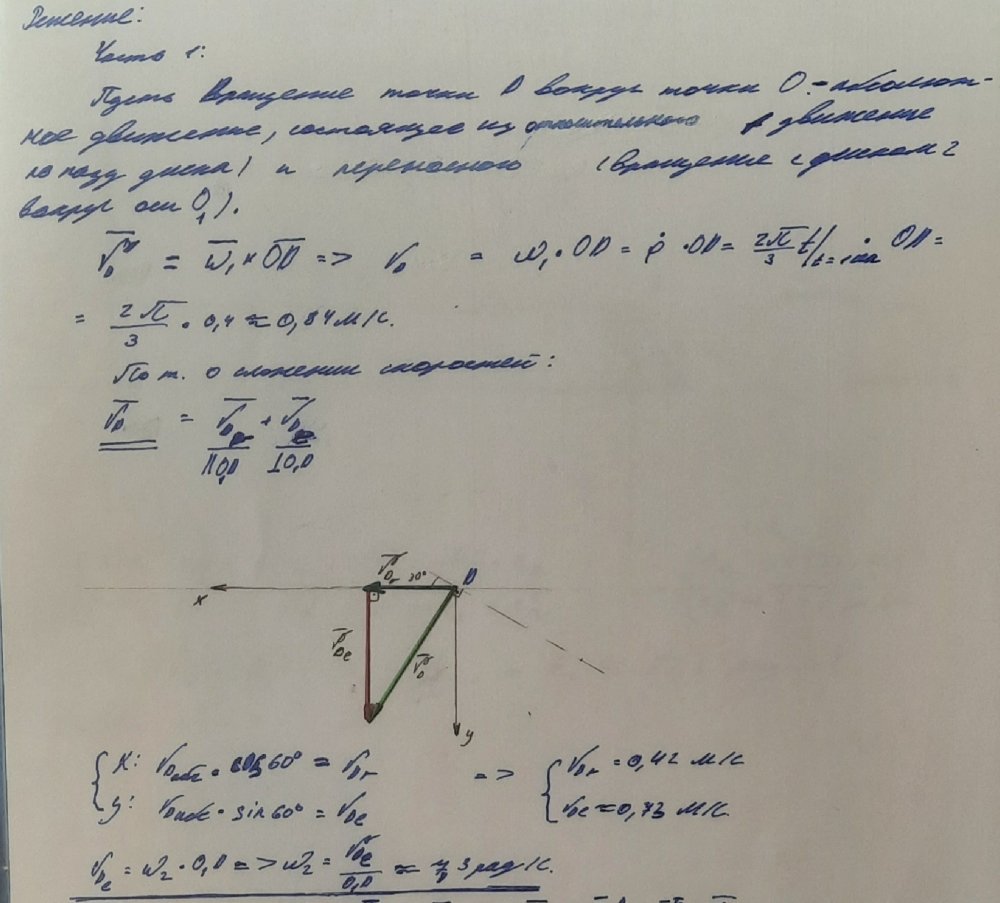 Решение:
Часть 1:
Пусть Вращение точки D вокруг точки O - абсолют-
ное движение, состоящее из относительного (движение
по пазу диска) и переносного (вращение с диском 2
вокруг оси O₁).
V̅_D = ω̅₁ × O̅D̅ => V_D = ω₁ · OD = φ̇ · OD = 2π/3 t/t=1 · OD =
= 2π/3 · 0,4 ≈ 0,84 м/с.
По т. о сложении скоростей:
V̅_D = V̅_Dr + V̅_De
||O₁D ⊥O₁D
V̅_Dr 30° D
x
V̅_De V̅_D
y
{ x: · cos 60° = V_Dr => { V_Dr = 0,42 м/с
y: · sin 60° = V_De V_De ≈ 0,73 м/с.
V_De = ω₂ · O₁D => ω₂ = V_De/O₁D ≈ рад/с.